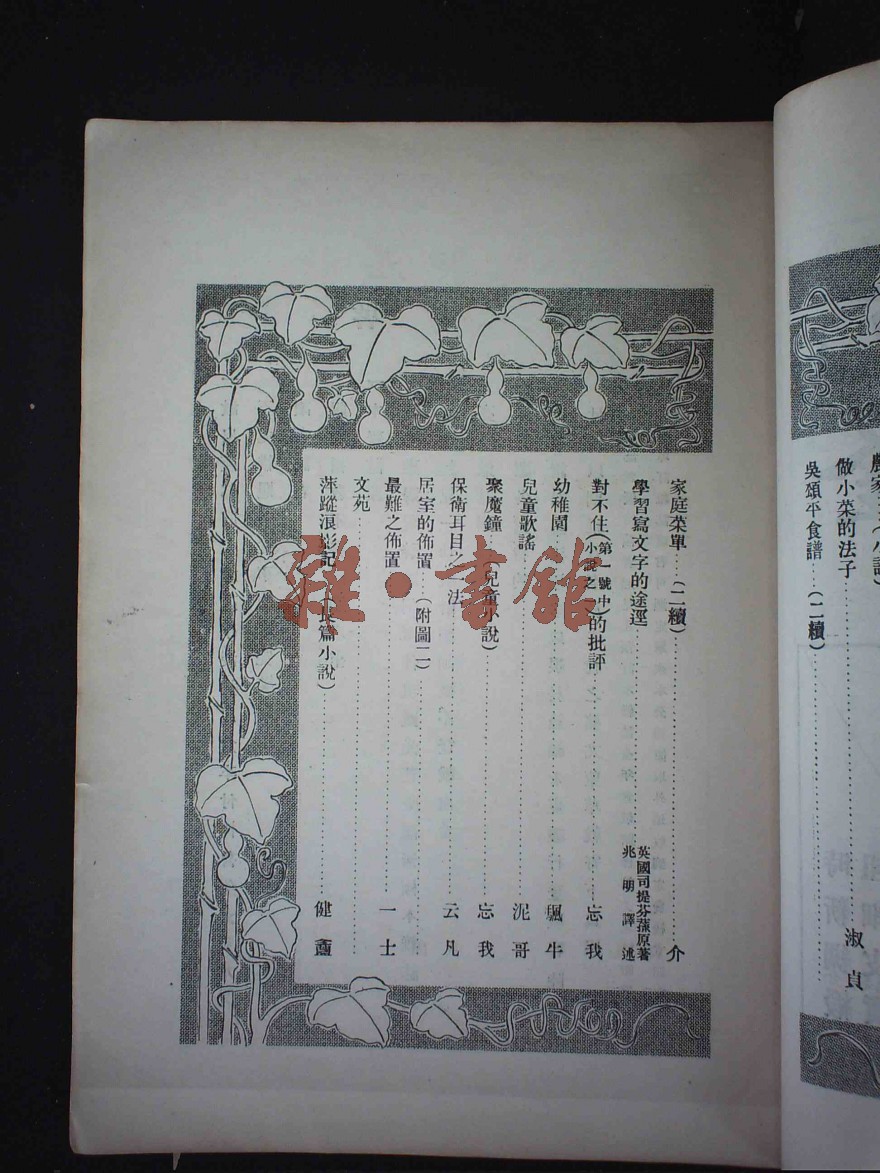 農家
小說)
做小菜的法子……淑貞
吳頌平食譜……(二續)……
家庭菜單……(二續)……介
學習寫文字的途逕……英國司提芬蓀原著 兆明譯述
對不住(第一號中小說之一)的批評……忘我
幼稚園……飄牛
兒童歌謠……泥哥
聚魔鐘……(兒童小說)……忘我
保衛耳目之法……云凡
居室的佈置……(附圖二)……
最難之佈置……一士
文苑……
萍蹤浪影記(長篇小說)……健
雜·書館